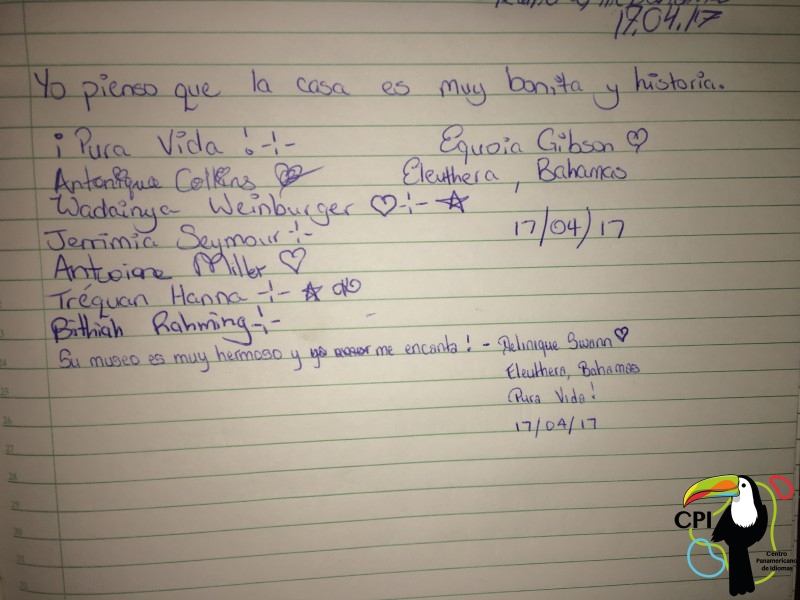 17.04.17
Yo pienso que la casa es muy bonita y historia.
¡Pura Vida!
Equoia Gibson
Antonique Collins
Eleuthera, Bahamas
Wadainya Weinburger
Jerrimia Seymour
17/04/17
Antoine Miller
Tréquan Hanna
Bithiah Rahming
Su museo es muy hermoso y me encanta! - Delinique Swann
Eleuthera, Bahamas
Pura Vida!
17/04/17
CPI
Centro
Panamericano
de Idiomas